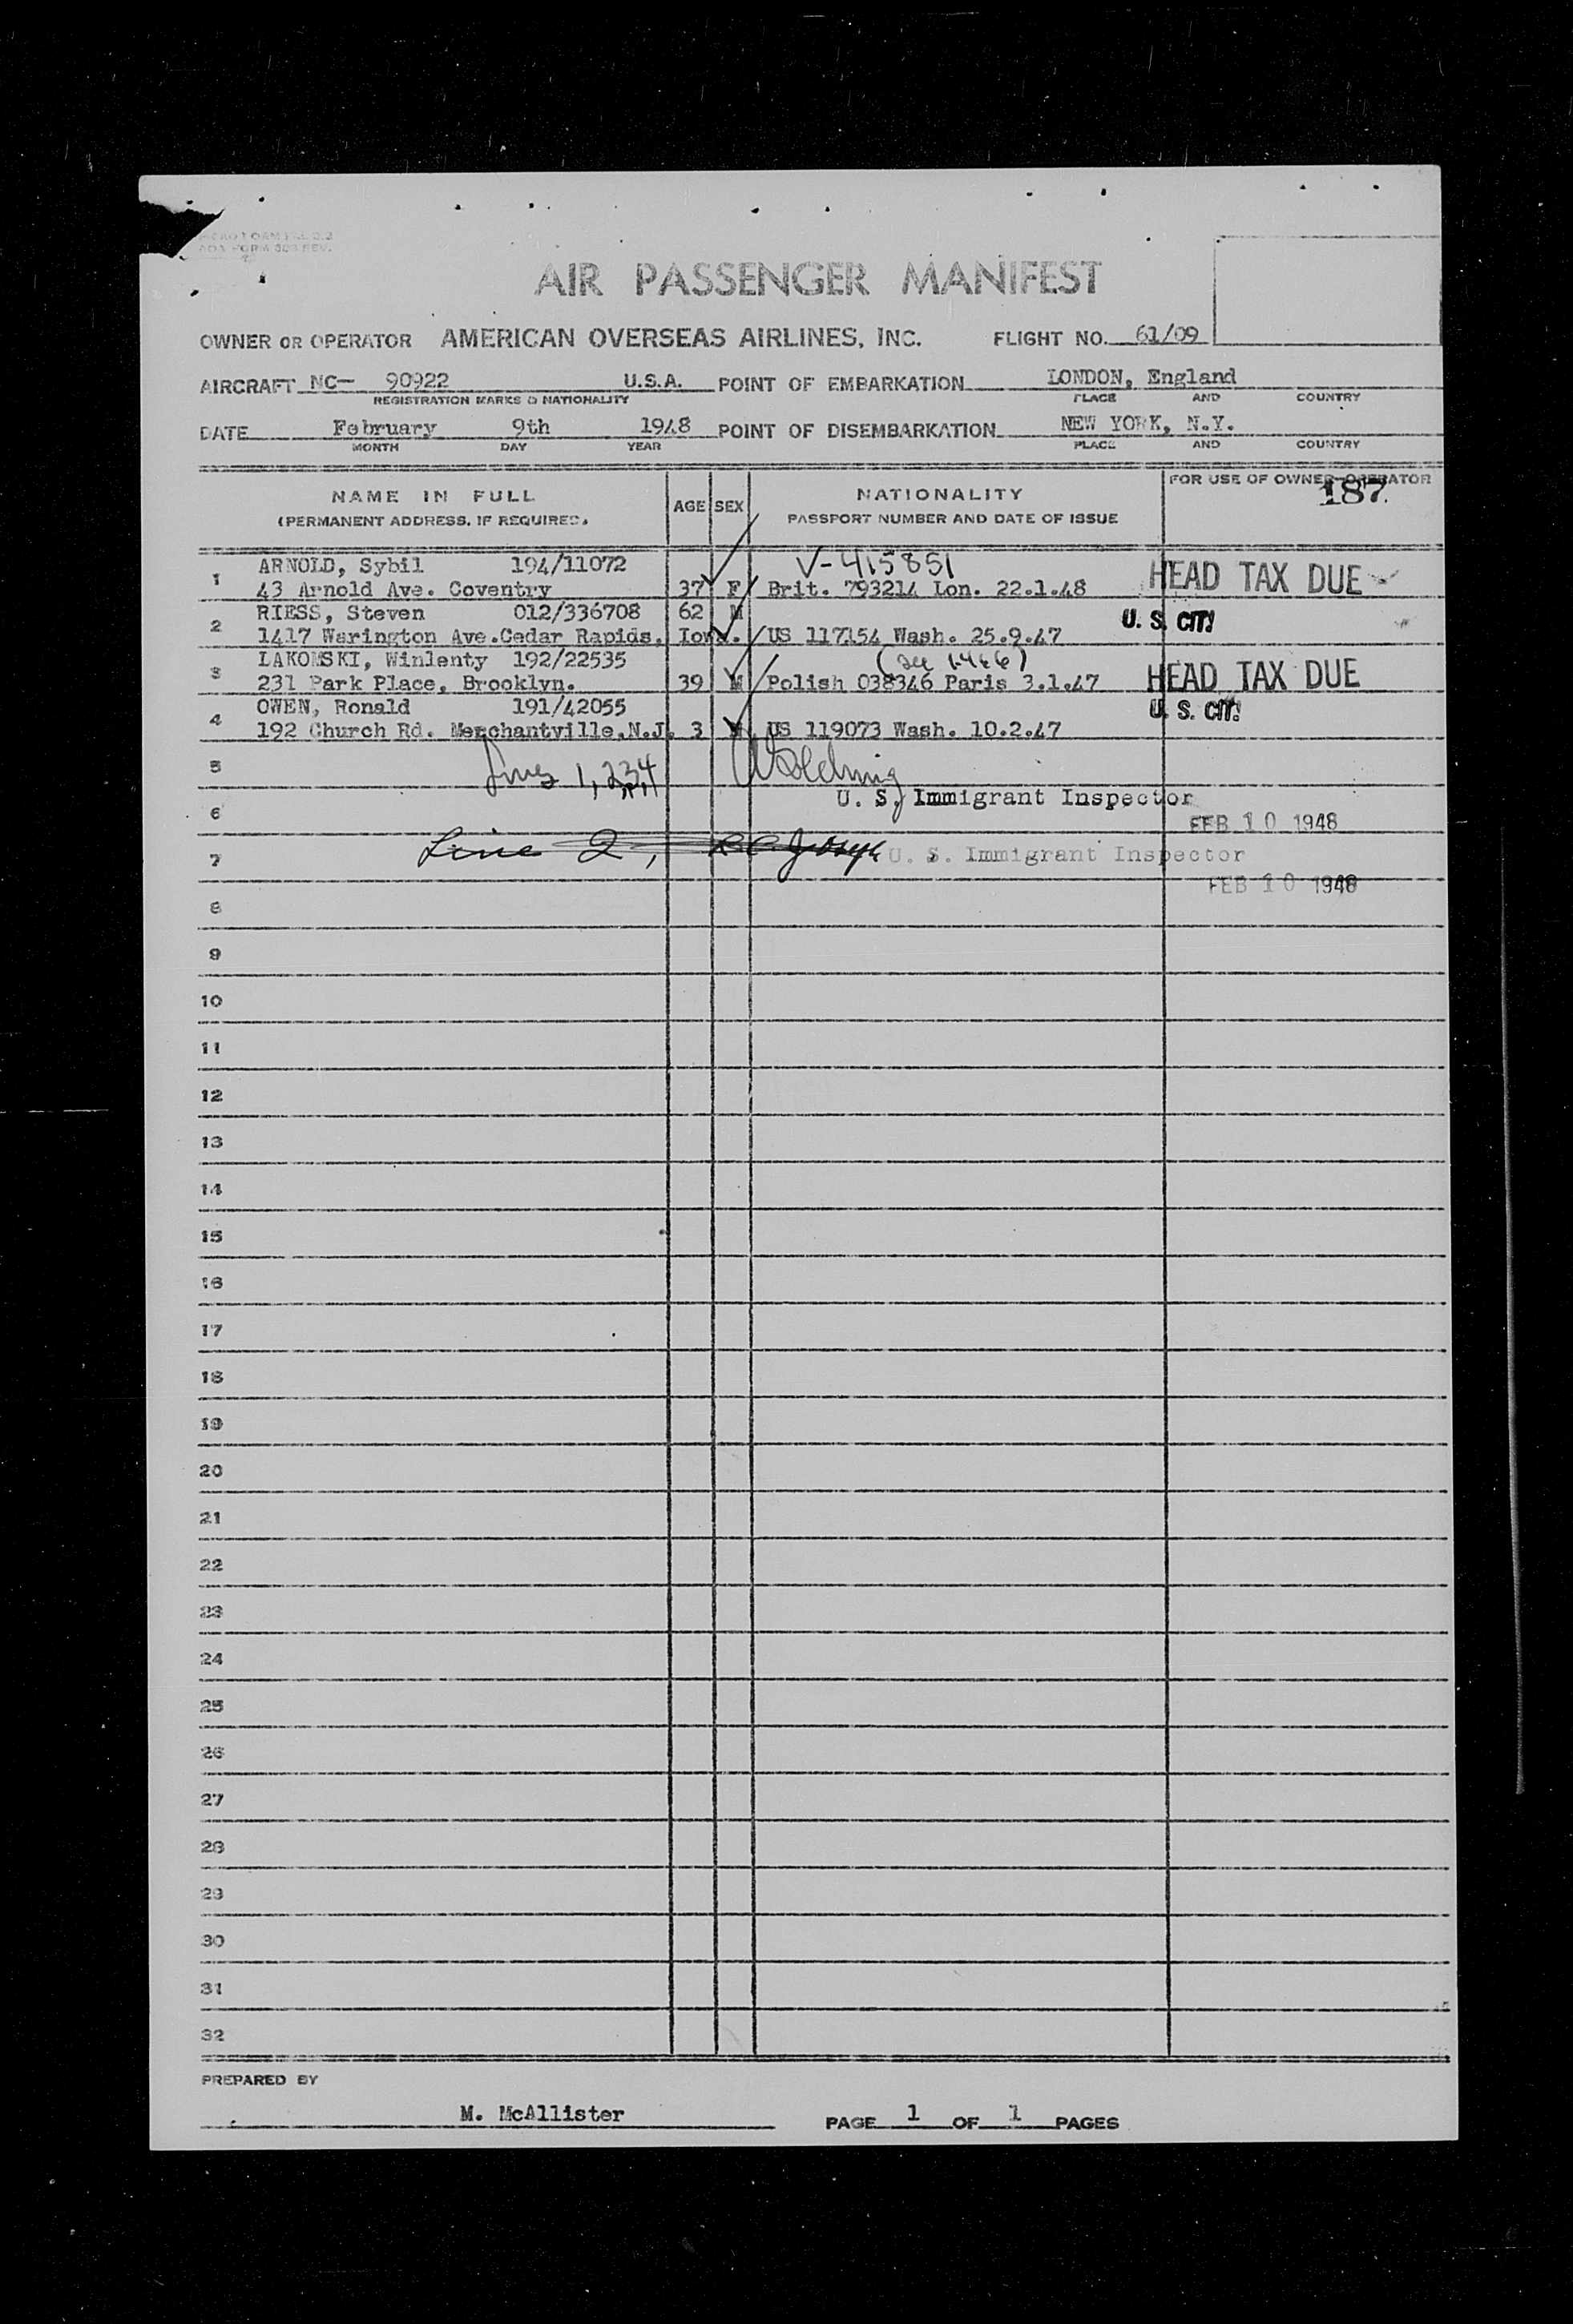 AIR PASSENGER MANIFEST
OWNER OR OPERATOR AMERICAN OVERSEAS AIRLINES, INC. FLIGHT NO. 61/09
AIRCRAFT NC— 90922 U.S.A. POINT OF EMBARKATION LONDON, England
REGISTRATION MARKS & NATIONALITY PLACE AND COUNTRY
DATE February 9th 1948 POINT OF DISEMBARKATION NEW YORK, N.Y.
MONTH DAY YEAR PLACE AND COUNTRY
NAME IN FULL AGE SEX NATIONALITY FOR USE OF OWNER-OPERATOR
(PERMANENT ADDRESS, IF REQUIRED) PASSPORT NUMBER AND DATE OF ISSUE 187
1 ARNOLD, Sybil 194/11072 V-415851
43 Arnold Ave. Coventry 37 F Brit. 793214 Lon. 22.1.48 HEAD TAX DUE
2 RIESS, Steven 012/336708 62 M U. S. CIT.
1417 Warington Ave.Cedar Rapids, Iowa. US 117154 Wash. 25.9.47
3 LAKOMSKI, Winlenty 192/22535
231 Park Place, Brooklyn. 39 M Polish 038346 Paris 3.1.47 HEAD TAX DUE
4 OWEN, Ronald 191/42055 U. S. CIT.
192 Church Rd. Merchantville,N.J. 3 M US 119073 Wash. 10.2.47
5 Lines 1, 2 3 4
6 U. S. Immigrant Inspector
FEB 10 1948
7 Line 2, U. S. Immigrant Inspector
FEB 10 1948
8
9
10
11
12
13
14
15
16
17
18
19
20
21
22
23
24
25
26
27
28
29
30
31
32
PREPARED BY
M. McAllister PAGE 1 OF 1 PAGES